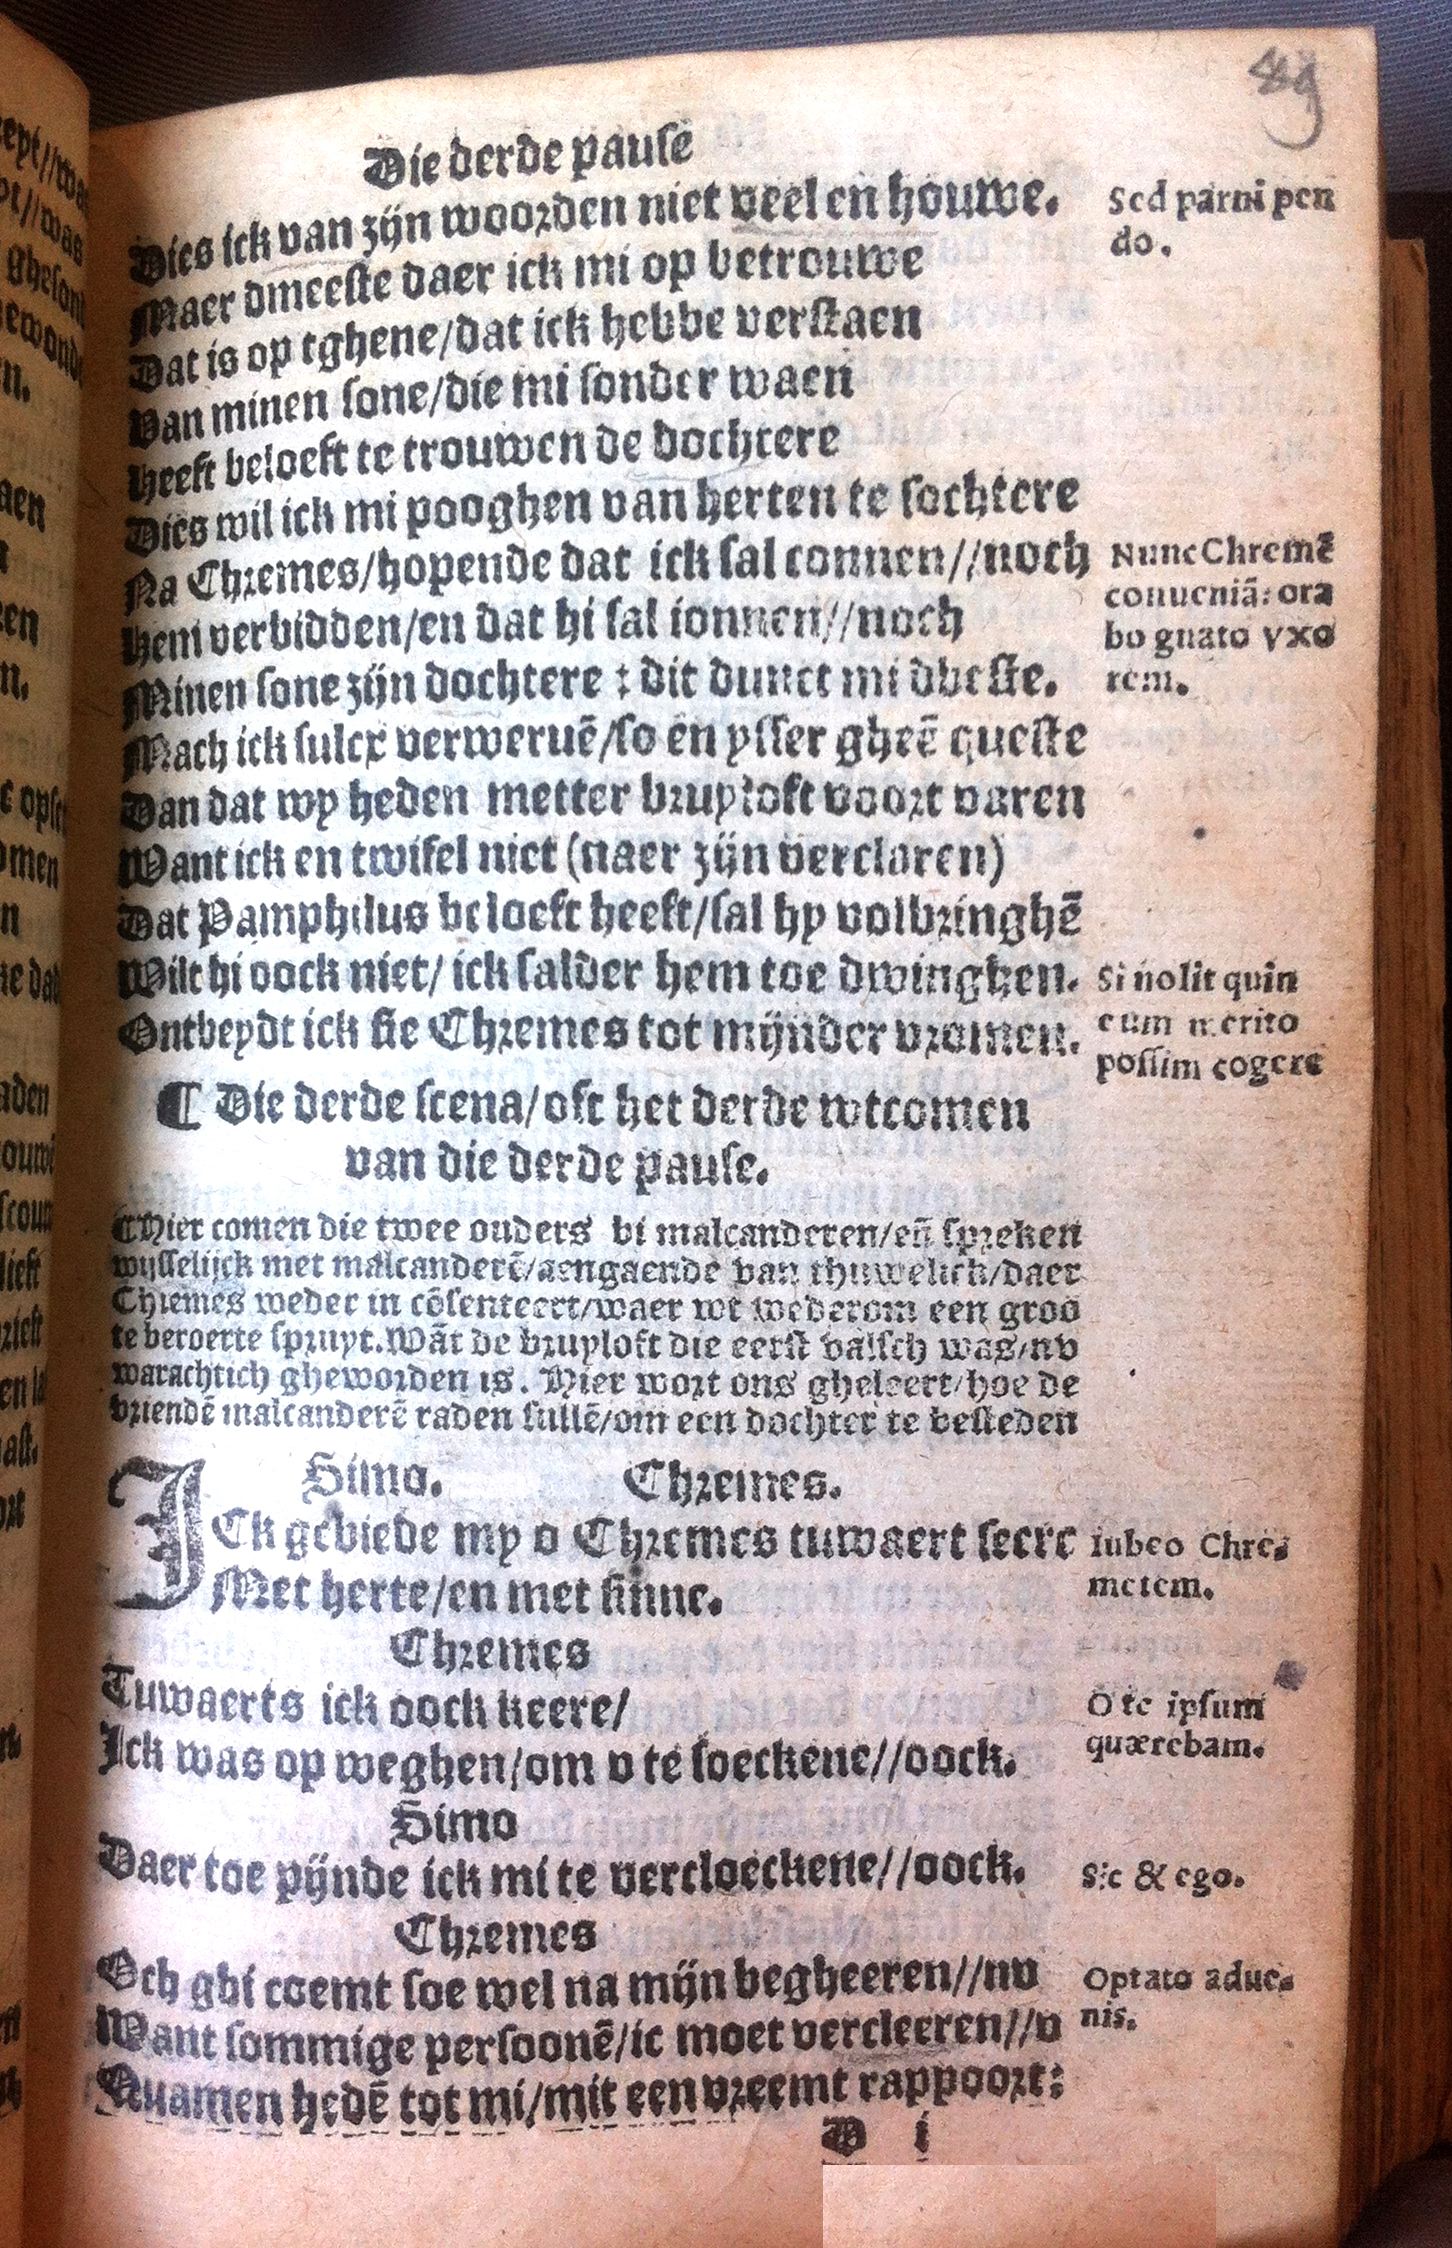 49
Die derde pausē
Dies ick van zijn woorden niet veel en houwe.
Maer dmeeste daer ick mi op betrouwe
Dat is op tghene/dat ick hebbe verstaen
Van minen sone/die mi sonder waen
Heeft beloeft te trouwen de dochtere
Dies wil ick mi pooghen van herten te sochtere
Na Chremes/hopende dat ick sal connen//noch
Hem verbidden/en dat hi sal ionnen//noch
Minen sone zijn dochtere : dit dunct mi dbeste.
Mach ick sulcx verweruē/so en ysser gheē queste
Dan dat wy heden metter bruyloft voort varen
Want ick en twifel niet (naer zijn verclaren)
Dat Pamphilus beloeft heeft/sal hy volbringhē
Wilt hi oock niet/ ick salder hem toe dwinghen.
Ontbeydt ick sie Chremes tot mijnder vromen.
Sed parui pen
do.
Nunc Chremē
conueniā: ora
bo gnato vxo
rem.
Si nolit quin
eum merito
possim cogere
¶ Die derde scena/oft het derde wtcomen
van die derde pause.
¶Hier comen die twee ouders bi malcanderen/eñ spreken
wijsselijck met malcanderē/aengaende van thuwelick/daer
Chremes weder in cōsenteert/waer wt wederom een groo
te beroerte spruyt. Wāt de bruyloft die eerst valsch was/nv
warachtich gheworden is. Hier wort ons gheleert/hoe de
vriendē malcanderē raden sullē/om een dochter te besteden
Simo. Chremes.
ICk gebiede my v Chremes tuwaert seere
Met herte/en met sinne.
Iubeo Chre-
metem.
Chremes
Tuwaerts ick oock keere/
Ick was op weghen/om v te soeckene//oock.
O te ipsum
quærebam.
Simo
Daer toe pijnde ick mi te vercloeckene//oock.
Sic & ego.
Chremes
Och ghi coemt soe wel na mijn begheeren//nv
Want sommige persoonē/ic moet vercleeren//v
Quamen hedē tot mi/mit een vreemt rappoort:
Optato adue-
nis.
D i